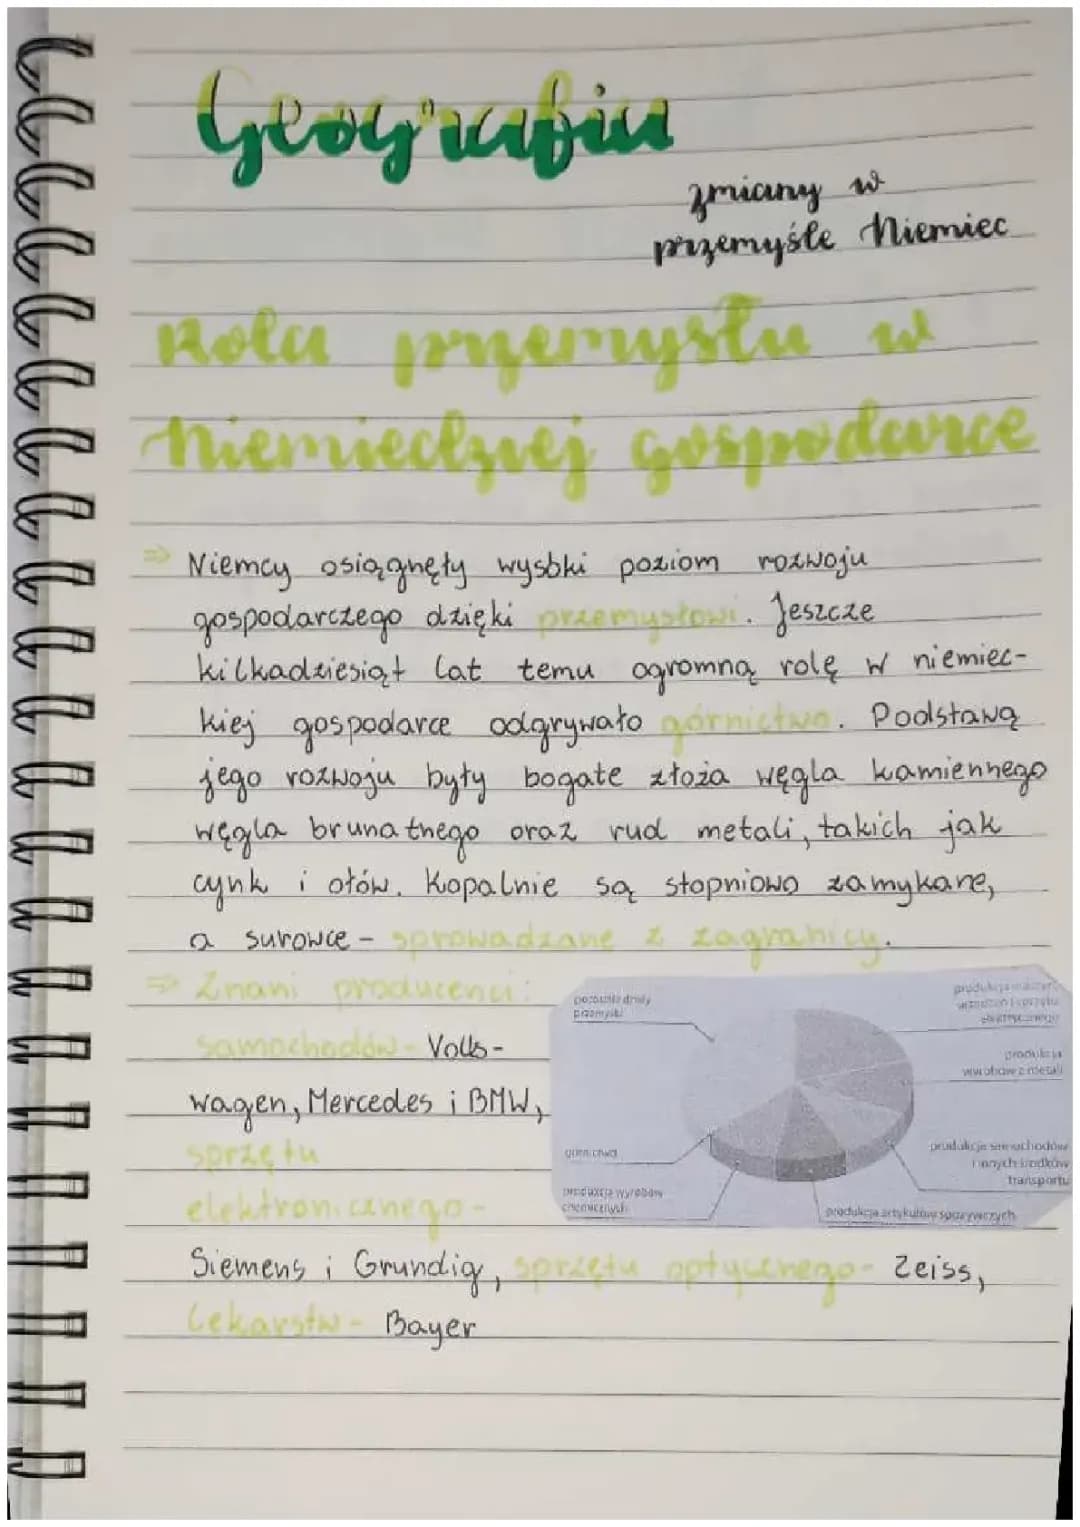 Geografia
zmiany w
przemyśle Niemiec
Rola przemysłu w
Niemieckiej gospodarce
⇒ Niemcy osiągnęły wysoki poziom rozwoju
gospodarczego dzięki przemysłowi. Jeszcze
kilkadziesiąt lat temu ogromną rolę w niemiec-
kiej gospodarce odgrywało górnictwo. Podstawą
jego rozwoju były bogate złoża węgla kamiennego
węgla brunatnego oraz rud metali, takich jak
cynk i ołów. Kopalnie są stopniowo zamykane,
a surowce - sprowadzane z zagranicy.
⇒ Znani producenci:
samochodów - Volks-
wagen, Mercedes i BMW,
sprzętu
elektronicznego -
Siemens i Grundig, sprzętu optycznego - Zeiss,
Lekarstw - Bayer
pozostałe działy
przemysłu
produkcja maszyn,
urządzeń i sprzętu
elektrycznego
produkcja
wyrobów z metali
produkcja samochodów
i innych środków
transportu
produkcja artykułów spożywczych
produkcja wyrobów
chemicznych
górnictwo